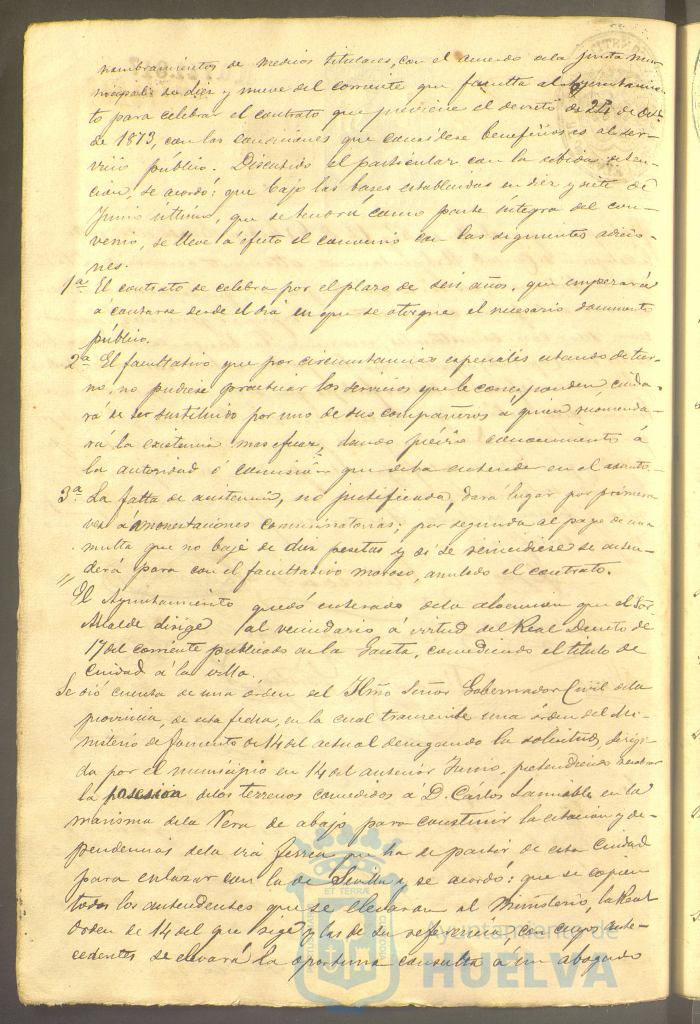 nombramientos de medios titulares, con el acuerdo dela Junta mu-
nicipal su diez y nueve del corriente que faculta al Ayuntamien-
to para celebrar el contrato que previene el decreto de 24 de Octe
de 1873, con las condiciones que considere beneficiosas al ser-
vicio público. Discutido el particular con la debida deten-
cion, se acordó: que bajo las bases establecidas en diez y siete de
Junio último, que se tendrá como parte íntegra del con-
venio, se lleve á efecto el convenio con las siguientes adicio-
nes.
1ª El contrato se celebra por el plazo de seis años, que empezará
a contarse desde el dia en que se otorgue el necesario documento
público.
2ª El facultativo que por circunstancias especiales estando de tur-
no, no pudiese practicar los servicios que le corresponden cuida-
rá de ser sustituido por uno de sus compañeros á quien recomenda-
rá la asistencia mas eficaz, dando prévio conocimiento á
la autoridad ó comision que deba entender en el asunto.
3ª La falta de asistencia, no justificada, dará lugar por primera
vez á amonestaciones conminatorias; por segunda al pago de una
multa que no baje de diez pesetas y si se reincidiese se enten-
derá para con el facultativo moroso, anulado el contrato.
" El Ayuntamiento quedó enterado dela alocucion que el Sor
Alcalde dirige al vecindario á virtud del Real Decreto de
17 del corriente publicado en la Gaceta, concediendo el título de
Ciudad á la villa.
Se dió cuenta de una orden del Ylmo Señor Gobernador Civil dela
provincia, de esta fecha, en la cual transcribe una órden del Mi-
nisterio de Fomento de 14 del actual denegando la solicitud, dirigi-
da por el municipio en 14 del anterior Junio, pretendiendo
la posesion delos terrenos concedidos a D. Carlos Lamiable en la
marisma dela Vera de abajo para construir la estacion y de-
pendencias dela via ferrea que ha de partir de esta Ciudad
para enlazar con la de Sevilla y se acordó: que se copien
todos los antecedentes que se llevaran al Ministerio, la Real
orden de 14 del que rige y las de su referencia, con cuyos ante-
cedentes se elevará la oportuna consulta á un abogado
Ayuntamiento de
HUELVA